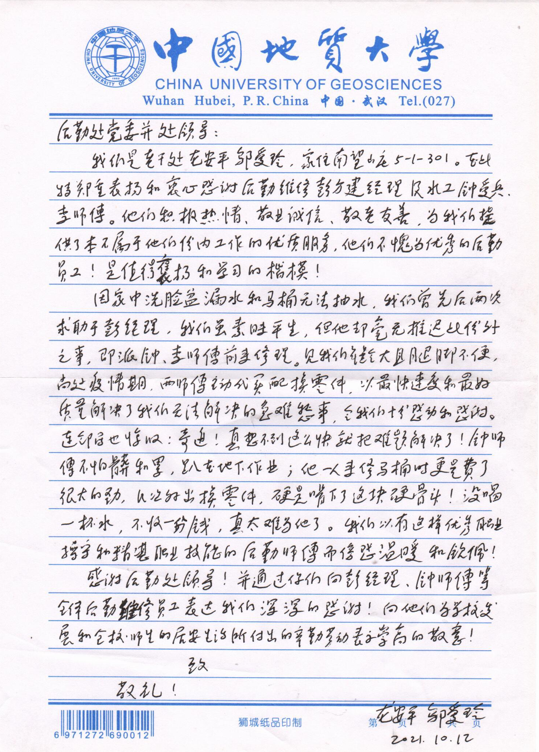 中國地質大學
CHINA UNIVERSITY OF GEOSCIENCES
Wuhan Hubei, P.R.China 中国·武汉 Tel.(027)
后勤处党委并处领导：
我们是老干处 安平 邹爱玲，家住南望山庄5-1-301。在此
特郑重表扬和衷心感谢后勤维修彭方建经理及水工钟爱兵、
李师傅。他们积极热情、敬业诚信、敬老友善，为我们提
供了本不属于他们份内工作的优质服务，他们不愧为优秀的后勤
员工！是值得褒扬和学习的楷模！
因家中洗脸盆漏水和马桶无法抽水，我们曾先后两次
求助于彭经理，我们虽素昧平生，但他却毫无推迟此份外
之事，即派钟、李师傅前来修理。见我们年龄大且腿脚不便，
尚处疫情期，两师傅主动代买配换零件，以最快速度和最好
质量解决了我们无法解决的急难愁事，令我们十分感动和感谢。
连邻居也惊叹：奇迹！真想不到这么快就把难题解决了！钟师
傅不怕脏和累，趴在地下作业；他一人手修马桶时更是费了
很大的劲，几次外出换零件，硬是啃下了这块硬骨头！没喝
一杯水，不收一分钱，真太难为他了。我们以有这样优秀职业
操守和精湛职业技能的后勤师傅而倍感温暖和钦佩！
感谢后勤处领导！并通过你们向彭经理、钟师傅等
全体后勤维修员工表达我们深深的感谢！向他们为学校发
展和全校师生的居安生活所付出的辛勤劳动表示崇高的敬意！
致
敬礼！
安平 邹爱玲
2021.10.12
6 971272 690012
狮城纸品印制
第 页 共 页